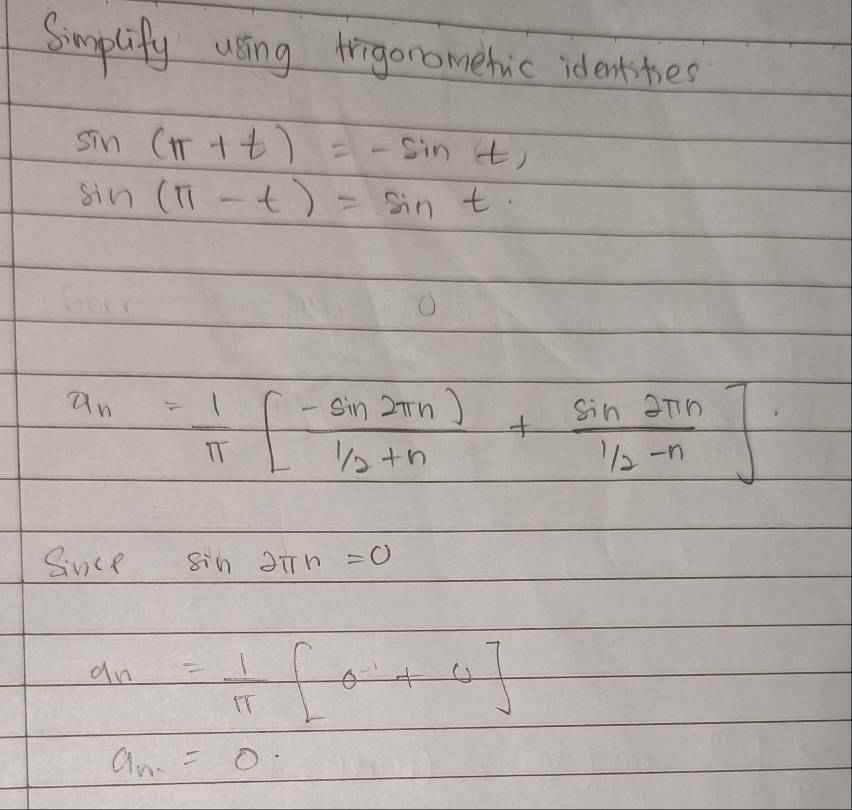 Simplify using trigonometric identities
sin (π + t) = - sin t,
sin (π - t) = sin t.
0
an = 1/π [ - sin 2πn) / 1/2 + n + sin 2πn / 1/2 - n ].
Since sin 2πn = 0
an = 1/π [ 0 + 0 ]
an. = 0.